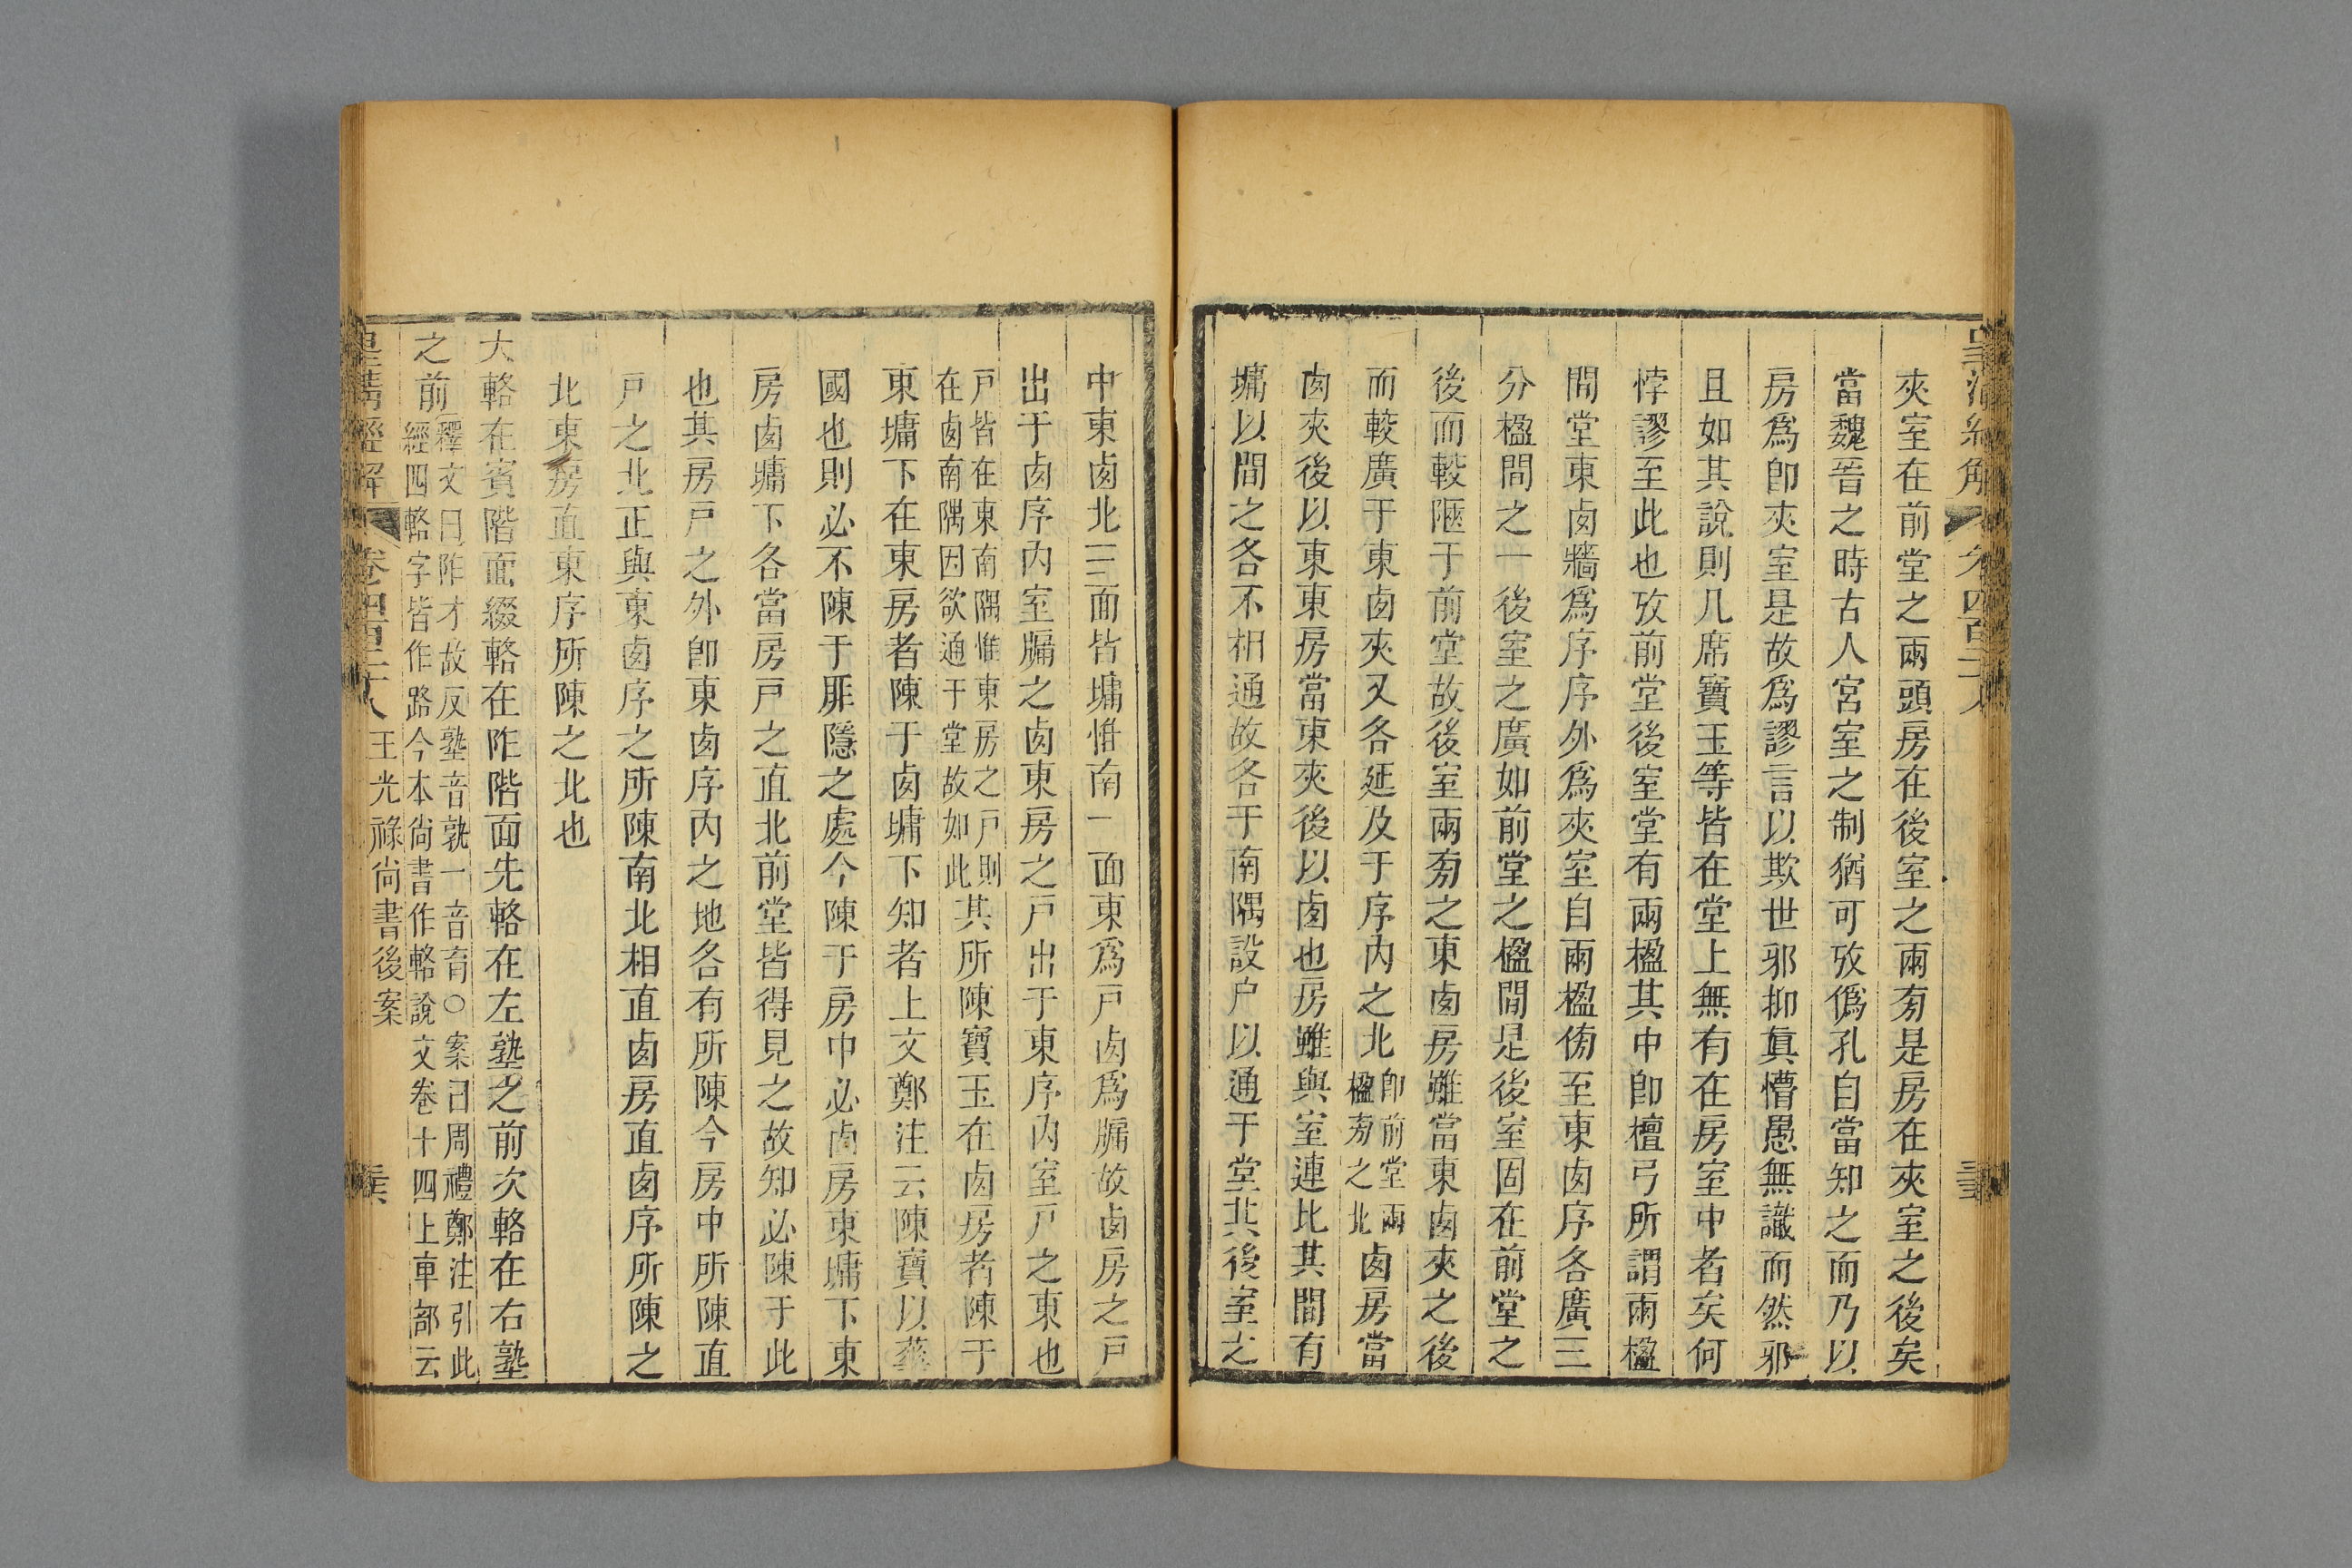 夾室在前堂之兩頭房在後室之兩㫄是房在夾室之後矣
當魏晉之時古人宮室之制猶可攷僞孔自當知之而乃以
房爲卽夾室是故爲謬言以欺世邪抑眞懵愚無識而然邪
且如其說則几席寶玉等皆在堂上無有在房室中者矣何
悖謬至此也攷前堂後室堂有兩楹其中卽檀弓所謂兩楹
閒堂東㢴牆爲序序外爲夾室自兩楹㑂至東㢴序各廣三
分楹間之一後室之廣如前堂之楹閒是後室固在前堂之
後而較陿于前堂故後室兩㫄之東㢴房雖當東㢴夾之後
而較廣于東㢴夾又各延及于序內之北卽前堂兩楹㫄之北㢴房當
㢴夾後以東東房當東夾後以㢴也房雖與室連比其閒有
墉以間之各不相通故各于南隅設户以通于堂其後室之
中東㢴北三面皆墉惟南一面東爲戸㢴爲牖故㢴房之戸
出于㢴序內室牖之㢴東房之戸出于東序內室戸之東也
戸皆在東南隅惟東房之戸則在㢴南隅因欲通于堂故如此其所陳寶玉在㢴房者陳于
東墉下在東房者陳于㢴墉下知者上文鄭注云陳寶以華
國也則必不陳于厞隱之處今陳于房中必㢴房東墉下東
房㢴墉下各當房戸之直北前堂皆得見之故知必陳于此
也其房戸之外卽東㢴序內之地各有所陳今房中所陳直
戸之北正與東㢴序之所陳南北相直㢴房直㢴序所陳之
北東房直東序所陳之北也
大輅在賓階面綴輅在阼階面先輅在左塾之前次輅在右塾
之前釋文曰阼才故反塾音孰一音育○案曰周禮鄭注引此經四輅字皆作路今本尙書作輅說文卷十四上車部云
皇清經解 卷四百二十八 王光祿尙書後案